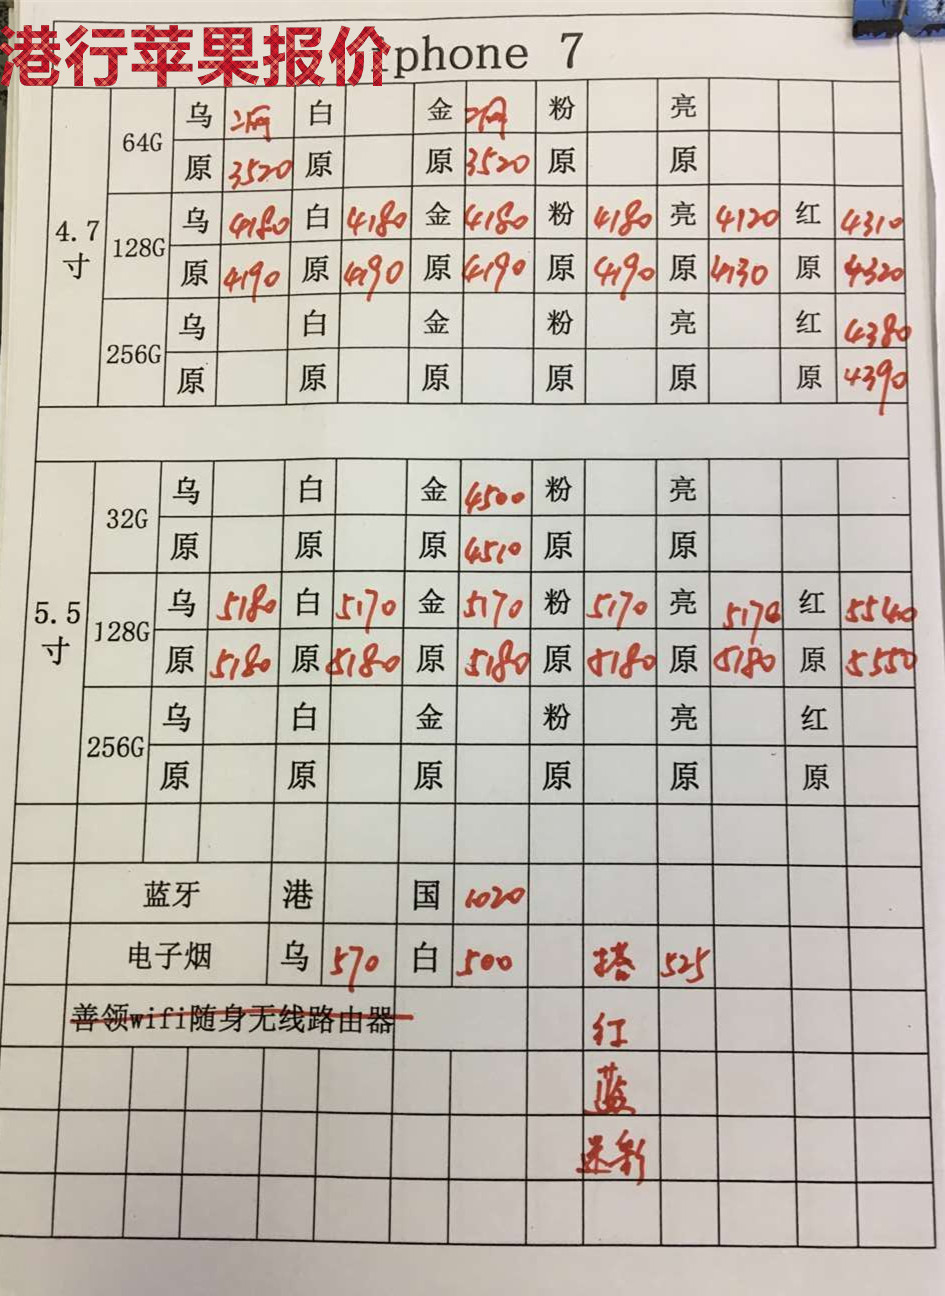 港行苹果报价
Iphone 7
4.7寸
64G 乌 白 金 粉 亮
原 3520 原 原 3520 原 原
128G 乌 4180 白 4180 金 4180 粉 4180 亮 4120 红 4310
原 4190 原 4190 原 4190 原 4190 原 4130 原 4320
256G 乌 白 金 粉 亮 红 4380
原 原 原 原 原 原 4390
5.5寸
32G 乌 白 金 4500 粉 亮
原 原 原 4510 原 原
128G 乌 5180 白 5170 金 5170 粉 5170 亮 5170 红 5540
原 5180 原 5180 原 5180 原 5180 原 5180 原 5550
256G 乌 白 金 粉 亮 红
原 原 原 原 原 原
蓝牙 港 国 1020
电子烟 乌 570 白 500 搭 525
善领wifi随身无线路由器
红
蓝
迷彩